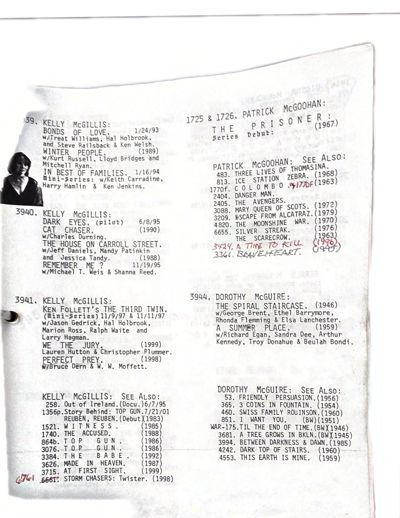 39. KELLY McGILLIS:
BONDS OF LOVE. 1/24/93
w/Treat Williams, Hal Holbrook,
and Steve Railsback & Ken Welsh.
WINTER PEOPLE. (1989)
w/Kurt Russell, Lloyd Bridges and
Mitchell Ryan.
IN BEST OF FAMILIES. 1/16/94
Mini-Series: w/Keith Carradine,
Harry Hamlin & Ken Jenkins.
3940. KELLY McGILLIS:
DARK EYES. (pilot) 6/8/95
CAT CHASER. (1990)
w/Charles Durning.
THE HOUSE ON CARROLL STREET.
w/Jeff Daniels, Mandy Patinkin
and Jessica Tandy. (1988)
REMEMBER ME ? 11/19/95
w/Michael T. Weis & Shanna Reed.
3941. KELLY McGILLIS:
KEN FOLLETT'S THE THIRD TWIN.
(Mini-Series) 11/9/97 & 11/11/97
w/Jason Gedrick, Hal Holbrook,
Marion Ross, Ralph Waite and
Larry Hagman.
WE THE JURY. (1999)
Lauren Hutton & Christopher Plummer.
PERFECT PREY. (1998)
w/Bruce Dern & W. W. Moffett.
KELLY McGILLIS: SEE ALSO:
258. Out of Ireland.(Docu.)6/7/95
1356o.Story Behind: TOP GUN.7/21/01
REUBEN, REUBEN.(Debut)(1983)
1521. W I T N E S S. (1985)
1740. THE ACCUSED. (1988)
864b. T O P G U N. (1986)
3076. T O P G U N. (1986)
3384. T H E B A B E. (1992)
3626. MADE IN HEAVEN. (1987)
3715. AT FIRST SIGHT. (1999)
STORM CHASERS: Twister. (1998)
1725 & 1726. PATRICK McGOOHAN:
T H E P R I S O N E R :
Series Debut: (1967)
PATRICK McGOOHAN: SEE ALSO:
483. THREE LIVES OF THOMASINA.
813. ICE STATION ZEBRA. (1968)
1770f. C O L U M B O (1963)
2404. DANGER MAN.
2405. THE AVENGERS.
3088. MARY QUEEN OF SCOTS. (1972)
3209. ESCAPE FROM ALCATRAZ. (1979)
4820. THE MOONSHINE WAR. (1970)
6655. SILVER STREAK. (1976)
THE SCARECROW. (1963)
3424. A TIME TO KILL (1996)
3361. BRAVEHEART.
3944. DOROTHY McGUIRE:
THE SPIRAL STAIRCASE. (1946)
w/George Brent, Ethel Barrymore,
Rhonda Fleming & Elsa Lanchester.
A SUMMER PLACE. (1959)
w/Richard Egan, Sandra Dee, Arthur
Kennedy, Troy Donahue & Beulah Bondi.
DOROTHY McGUIRE: SEE ALSO:
53. FRIENDLY PERSUASION.(1956)
365. 3 COINS IN FOUNTAIN. (1954)
460. SWISS FAMILY ROBINSON.(1960)
851. I WANT YOU. (BW)(1951)
WAR-175.TIL THE END OF TIME.(BW)(1946)
3681. A TREE GROWS IN BKLN.(BW)(1945)
3994. BETWEEN DARKNESS & DAWN.(1985)
4242. DARK TOP OF STAIRS. (1960)
4553. THIS EARTH IS MINE. (1959)